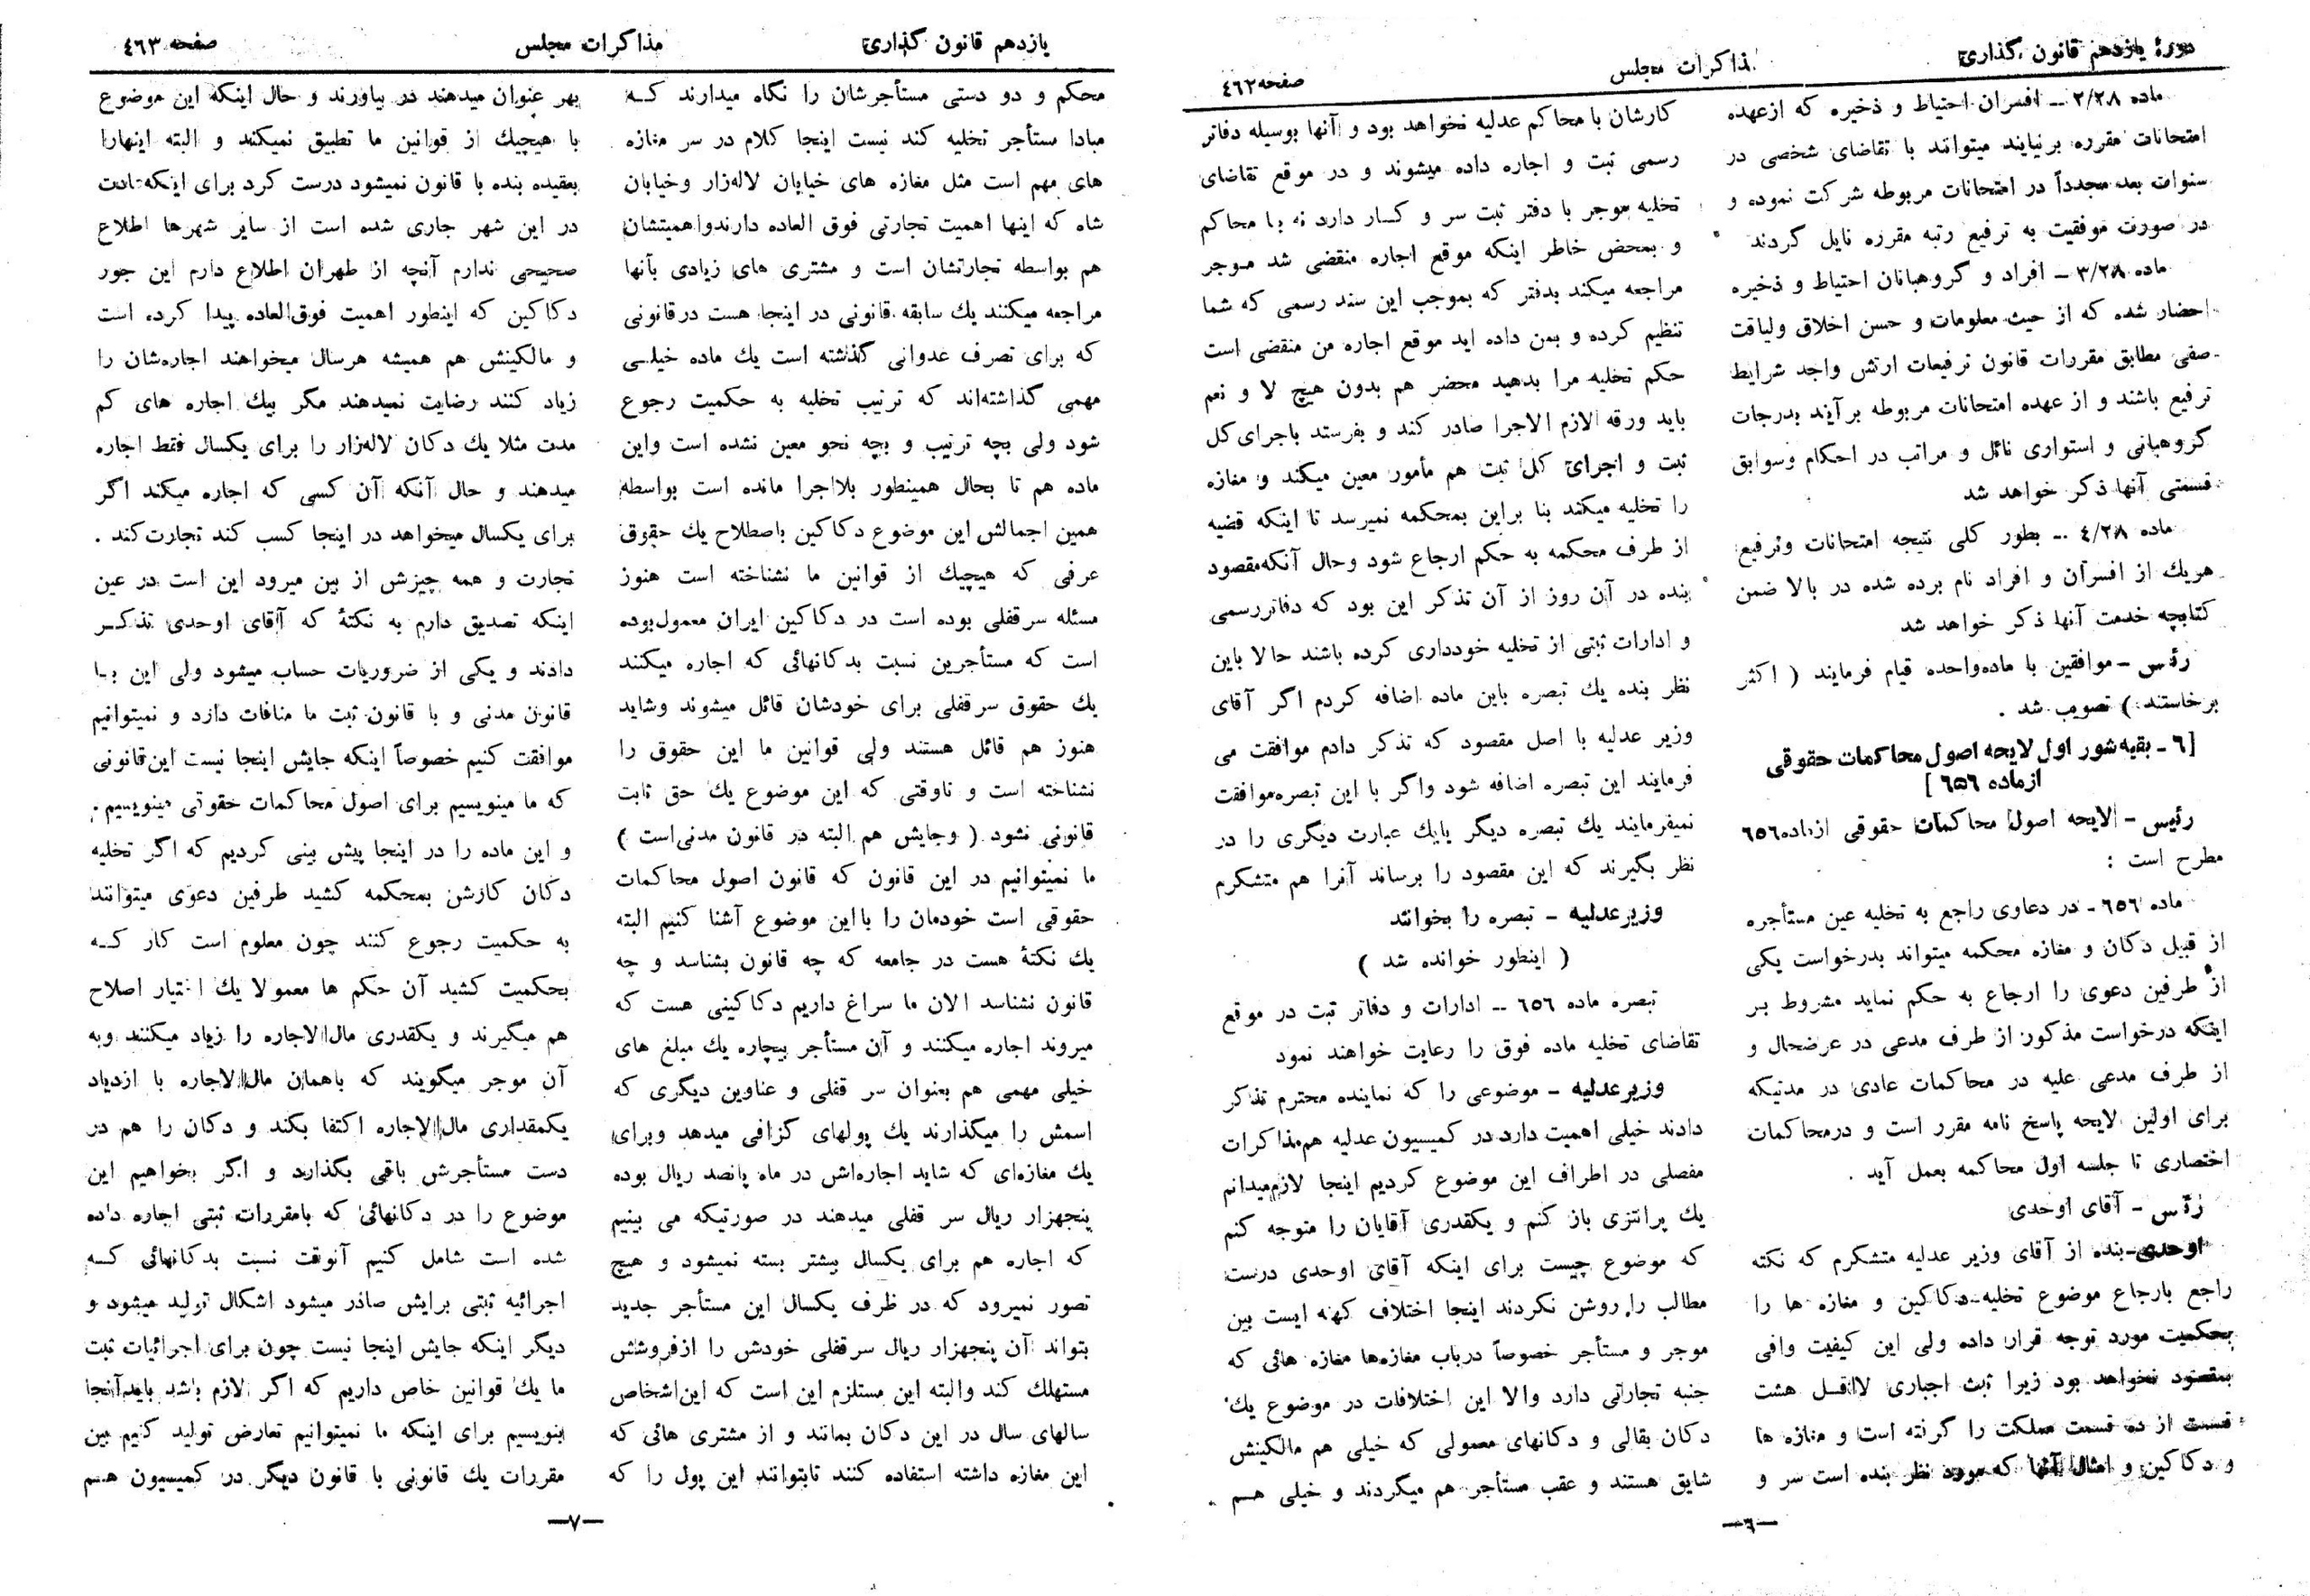 دورهٔ یازدهم قانون گذاری
مذاکرات مجلس
صفحه ٤٦٢
ماده ٢/٢٨ ــ افسران احتیاط و ذخیره که ازعهده
امتحانات مقرره برنیایند میتوانند با تقاضای شخصی در
سنوات بعد مجدداً در امتحانات مربوطه شرکت نموده و
در صورت موفقیت به ترفیع رتبه مقرره نایل گردند
ماده ٣/٢٨ ــ افراد و گروهبانان احتیاط و ذخیره
احضار شده که از حیث معلومات و حسن اخلاق ولیاقت
صفی مطابق مقررات قانون ترفیعات ارتش واجد شرایط
ترفیع باشند و از عهده امتحانات مربوطه برآیند بدرجات
گروهبانی و استواری نائل و مراتب در احکام وسوابق
قسمتی آنها ذکر خواهد شد
ماده ٤/٢٨ ــ بطور کلی نتیجه امتحانات وترفیع
هریك از افسران و افراد نام برده شده در بالا ضمن
کتابچه خدمت آنها ذکر خواهد شد
رئیس – موافقین با ماده‌واحده قیام فرمایند ( اکثر
برخاستند ) تصویب شد .
[٦ ـ بقیه شور اول لایحه اصول محاکمات حقوقی
ازماده ٦٥٦ ]
رئیس – لایحه اصول محاکمات حقوقی ازماده ٦٥٦
مطرح است :
ماده ٦٥٦ ـ در دعاوی راجع به تخلیه عین مستأجره
از قبیل دکان و مغازه محکمه میتواند بدرخواست یکی
از طرفین دعوی را ارجاع به حکم نماید مشروط بر
اینکه درخواست مذکور از طرف مدعی در عرضحال و
از طرف مدعی علیه در محاکمات عادی در مدتیکه
برای اولین لایحه پاسخ نامه مقرر است و درمحاکمات
اختصاری تا جلسه اول محاکمه بعمل آید .
رئیس – آقای اوحدی
اوحدی–بنده از آقای وزیر عدلیه متشکرم که نکته
راجع بارجاع موضوع تخلیه دکاکین و مغازه ها را
بحکمیت مورد توجه قرار داده ولی این کیفیت وافی
بمقصود نخواهد بود زیرا ثبت اجباری لااقل هشت
قسمت از ده قسمت مملکت را گرفته است و مغازه ها
و دکاکین و امثال آنها که مورد نظر بنده است سر و
کارشان با محاکم عدلیه نخواهد بود و آنها بوسیله دفاتر
رسمی ثبت و اجاره داده میشوند و در موقع تقاضای
تخلیه موجر با دفتر ثبت سر و کـار دارد نه با محاکم
و بمحض خاطر اینکه موقع اجاره منقضی شد موجر
مراجعه میکند بدفتر که بموجب این سند رسمی که شما
تنظیم کرده و بمن داده اید موقع اجاره من منقضی است
حکم تخلیه مرا بدهید محضر هم بدون هیچ لا و نعم
باید ورقه الازم الاجرا صادر کند و بفرستد باجرای‌کل
ثبت و اجرای کل ثبت هم مأمور معین میکند و مغازه
را تخلیه میکند بنا براین بمحکمه نمیرسد تا اینکه قضیه
از طرف محکمه به حکم ارجاع شود وحال آنکه‌مقصود
بنده در آن روز از آن تذکر این بود که دفاتررسمی
و ادارات ثبتی از تخلیه خودداری کرده باشند حالا باین
نظر بنده یك تبصره باین ماده اضافه کردم اگر آقای
وزیر عدلیه با اصل مقصود که تذکر دادم موافقت می
فرمایند این تبصره اضافه شود واگر با این تبصره‌موافقت
نمیفرمایند یك تبصره دیگر یایك عبارت دیگری را در
نظر بگیرند که این مقصود را برساند آنرا هم متشکرم
وزیرعدلیه – تبصره را بخوانند
( اینطور خوانده شد )
تبصره ماده ٦٥٦ ــ ادارات و دفاتر ثبت در موقع
تقاضای تخلیه ماده فوق را رعایت خواهند نمود
وزیرعدلیه – موضوعی را که نماینده محترم تذکر
دادند خیلی اهمیت دارد در کمیسیون عدلیه هم‌مذاکرات
مفصلی در اطراف این موضوع کردیم اینجا لازم‌میدانم
یك پرانتزی باز کنم و یکقدری آقایان را متوجه کنم
که موضوع چیست برای اینکه آقای اوحدی درست
مطالب را روشن نکردند اینجا اختلاف کهنه ایست بین
موجر و مستأجر خصوصاً درباب مغازه‌ها مغازه هائی که
جنبه تجارتی دارد والا این اختلافات در موضوع یك
دکان بقالی و دکانهای معمولی که خیلی هم مالکینش
شایق هستند و عقب مستأجر هم میگردند و خیلی هـم
–٦–
یازدهم قانون گذاری
مذاکرات مجلس
صفحه ٤٦٣
محکم و دو دستی مستأجرشان را نگاه میدارند کـه
مبادا مستأجر تخلیه کند نیست اینجا کلام در سر مغازه
های مهم است مثل مغازه های خیابان لاله‌زار وخیابان
شاه که اینها اهمیت تجارتی فوق العاده دارندواهمیتشان
هم بواسطه تجارتشان است و مشتری های زیادی بآنها
مراجعه میکنند یك سابقه قانونی در اینجا هست درقانونی
که برای تصرف عدوانی گذاشته است یك ماده خیلـی
مهمی گذاشته‌اند که ترتیب تخلیه به حکمیت رجوع
شود ولی بچه ترتیب و بچه نحو معین نشده است واین
ماده هم تا بحال همینطور بلااجرا مانده است بواسطه
همین اجمالش این موضوع دکاکین باصطلاح یك حقوق
عرفی که هیچیك از قوانین ما نشناخته است هنوز
مسئله سرقفلی بوده است در دکاکین ایران معمول‌بوده
است که مستأجرین نسبت بدکانهائی که اجاره میکنند
یك حقوق سرقفلی برای خودشان قائل میشوند وشاید
هنوز هم قائل هستند ولی قوانین ما این حقوق را
نشناخته است و تاوقتی که این موضوع یك حق ثابت
قانونی نشود ( وجایش هم البته در قانون مدنی‌است )
ما نمیتوانیم در این قانون که قانون اصول محاکمات
حقوقی است خودمان را بااین موضوع آشنا کنیم البته
یك نکتهٔ هست در جامعه که چه قانون بشناسد و چه
قانون نشناسد الان ما سراغ داریم دکاکینی هست که
میروند اجاره میکنند و آن مستأجر بیچاره یك مبلغ های
خیلی مهمی هم بعنوان سر قفلی و عناوین دیگری که
اسمش را میگذارند یك پولهای گزافی میدهد وبرای
یك مغازه‌ای که شاید اجاره‌اش در ماه پانصد ریال بوده
پنجهزار ریال سر قفلی میدهند در صورتیکه می بینیم
که اجاره هم برای یکسال بیشتر بسته نمیشود و هیچ
تصور نمیرود که در ظرف یکسال این مستأجر جدید
بتواند آن پنجهزار ریال سرقفلی خودش را ازفروشش
مستهلك کند والبته این مستلزم این است که این‌اشخاص
سالهای سال در این دکان بمانند و از مشتری هائی که
این مغازه داشته استفاده کنند تابتوانند این پول را که
بهر عنوان میدهند در بیاورند و حال اینکه این موضوع
با هیچیك از قوانین ما تطبیق نمیکند و البته اینهارا
بعقیده بنده با قانون نمیشود درست کرد برای اینکه‌عادت
در این شهر جاری شده است از سایر شهرها اطلاع
صحیحی ندارم آنچه از طهران اطلاع دارم این جور
دکاکین که اینطور اهمیت فوق‌العاده پیدا کرده است
و مالکینش هم همیشه هرسال میخواهند اجاره‌شان را
زیاد کنند رضایت نمیدهند مگر بیك اجاره های کم
مدت مثلا یك دکان لاله‌زار را برای یکسال فقط اجاره
میدهند و حال آنکه آن کسی که اجاره میکند اگر
برای یکسال میخواهد در اینجا کسب کند تجارت‌کند .
تجارت و همه چیزش از بین میرود این است در عین
اینکه تصدیق دارم به نکتهٔ که آقای اوحدی تذکـر
دادند و یکی از ضروریات حساب میشود ولی این بـا
قانون مدنی و با قانون ثبت ما منافات دارد و نمیتوانیم
موافقت کنیم خصوصاً اینکه جایش اینجا نیست این‌قانونی
که ما مینویسیم برای اصول محاکمات حقوقی مینویسیم.
و این ماده را در اینجا پیش بینی کردیم که اگر تخلیه
دکان کارشن بمحکمه کشید طرفین دعوی میتوانند
به حکمیت رجوع کنند چون معلوم است کار کـه
بحکمیت کشید آن حکم ها معمولا یك اختیار اصلاح
هم میگیرند و یکقدری مال‌الاجاره را زیاد میکنند وبه
آن موجر میگویند که باهمان مال‌الاجاره با ازدیاد
یکمقداری مال‌الاجاره اکتفا بکند و دکان را هم در
دست مستأجرش باقی بگذارد و اگر بخواهیم این
موضوع را در دکانهائی که بامقررات ثبتی اجاره داده
شده است شامل کنیم آنوقت نسبت بدکانهائی کـه
اجرائیه ثبتی برایش صادر میشود اشکال تولید میشود و
دیگر اینکه جایش اینجا نیست چون برای اجرائیات ثبت
ما یك قوانین خاص داریم که اگر لازم باشد بایدآنجا
بنویسیم برای اینکه ما نمیتوانیم تعارض تولید کنیم بین
مقررات یك قانونی با قانون دیگر در کمیسیون هـم
–٧–